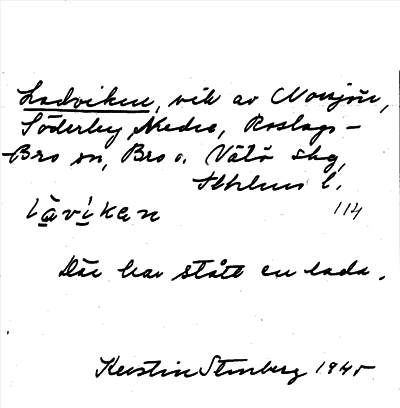 Ladviken, vik av Norsjön,
Söderby Nedre, Roslags-
Bro sn, Bro o. Vätö skg,
Sthlms l.
lav̲i̲ken 114
Där har stått en lada.
Kerstin Stenberg 1945